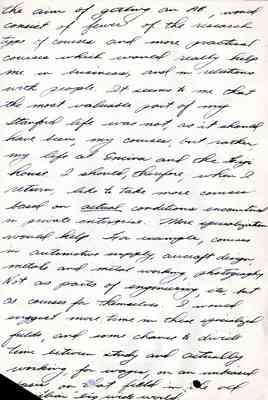 the aim of getting an AB, would
consist of fewer of the research
type of courses and more practical
courses which would really help
me in business, and in relations
with people. It seems to me that
the most valuable part of my
Stanford life was not, as it should
have been, my courses, but rather
my life at Encina and the
house. I should, therefore, when I
return, like to take more courses
based on actual conditions encountered
in private enterprise. More specialization
would help. For example, courses
in automotive supply, aircraft design,
metals and metal working, photography.
Not as parts of engineering, etc, but
as courses for themselves. I would
suggest more time in these specialized
fields, and some chance to divide
time between study and actually
working for wages, on an unbiased
basis on that field in the old
big wide world.